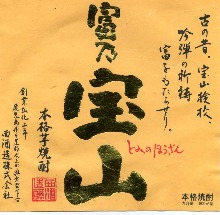 古の昔、宝山検校、
吟弾の祈祷
富をもたらす。
富乃
宝山
とみのほうざん
本格芋焼酎
創業弘化二年
西酒造株式会社
本格焼酎